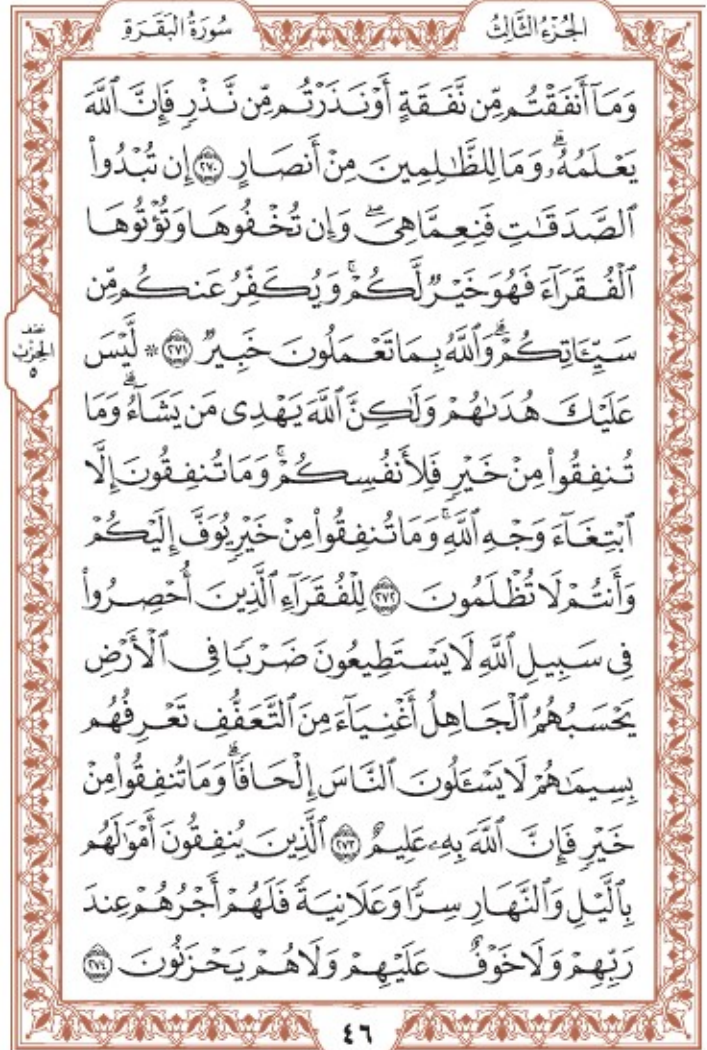 الجُزْءُ الثَّالِثُ
سُورَةُ البَقَرَةِ
وَمَآ أَنفَقْتُم مِّن نَّفَقَةٍ أَوْ نَذَرْتُم مِّن نَّذْرٍ فَإِنَّ ٱللَّهَ
يَعْلَمُهُۥۗ وَمَا لِلظَّٰلِمِينَ مِنْ أَنصَارٍ ۝٢٧٠ إِن تُبْدُوا۟
ٱلصَّدَقَٰتِ فَنِعِمَّا هِىَۖ وَإِن تُخْفُوهَا وَتُؤْتُوهَا
ٱلْفُقَرَآءَ فَهُوَ خَيْرٌ لَّكُمْۚ وَيُكَفِّرُ عَنكُم مِّن
سَيِّـَٔاتِكُمْۗ وَٱللَّهُ بِمَا تَعْمَلُونَ خَبِيرٌ ۝٢٧١ ۞ لَّيْسَ
نصف
الحِزْبِ
٥
عَلَيْكَ هُدَىٰهُمْ وَلَٰكِنَّ ٱللَّهَ يَهْدِى مَن يَشَآءُۗ وَمَا
تُنفِقُوا۟ مِنْ خَيْرٍ فَلِأَنفُسِكُمْۚ وَمَا تُنفِقُونَ إِلَّا
ٱبْتِغَآءَ وَجْهِ ٱللَّهِۚ وَمَا تُنفِقُوا۟ مِنْ خَيْرٍ يُوَفَّ إِلَيْكُمْ
وَأَنتُمْ لَا تُظْلَمُونَ ۝٢٧٢ لِلْفُقَرَآءِ ٱلَّذِينَ أُحْصِرُوا۟
فِى سَبِيلِ ٱللَّهِ لَا يَسْتَطِيعُونَ ضَرْبًا فِى ٱلْأَرْضِ
يَحْسَبُهُمُ ٱلْجَاهِلُ أَغْنِيَآءَ مِنَ ٱلتَّعَفُّفِ تَعْرِفُهُم
بِسِيمَٰهُمْ لَا يَسْـَٔلُونَ ٱلنَّاسَ إِلْحَافًاۗ وَمَا تُنفِقُوا۟ مِنْ
خَيْرٍ فَإِنَّ ٱللَّهَ بِهِۦ عَلِيمٌ ۝٢٧٣ ٱلَّذِينَ يُنفِقُونَ أَمْوَٰلَهُم
بِٱلَّيْلِ وَٱلنَّهَارِ سِرًّا وَعَلَانِيَةً فَلَهُمْ أَجْرُهُمْ عِندَ
رَبِّهِمْ وَلَا خَوْفٌ عَلَيْهِمْ وَلَا هُمْ يَحْزَنُونَ ۝٢٧٤
٤٦